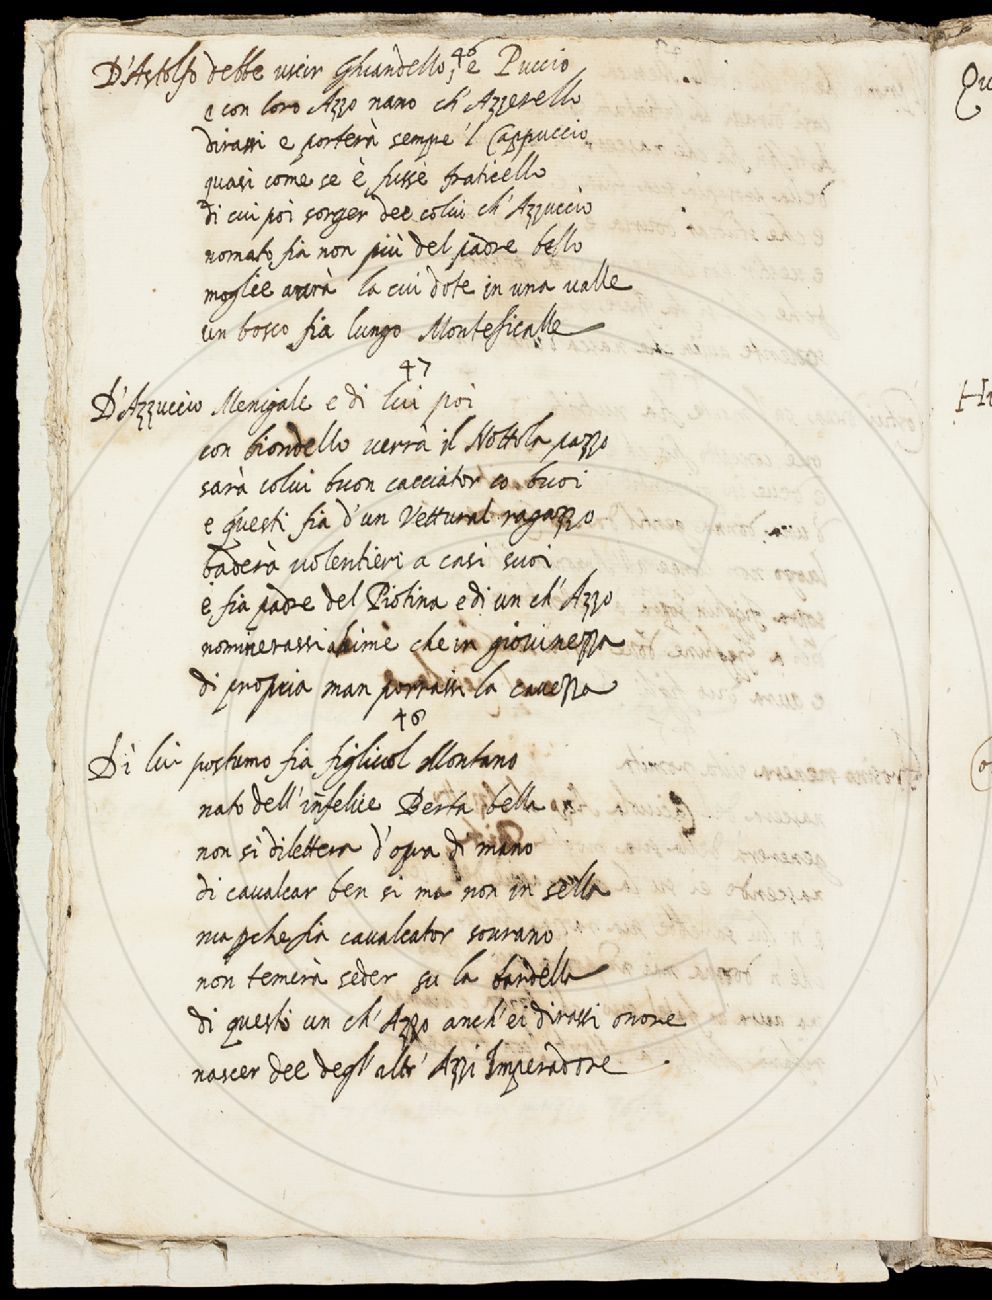 46
D'Astolfo debbe uscir Ghiandello, e Puccio
e con loro Azzo nano ch'Azzerello
dirassi e porterà sempre 'l Cappuccio
quasi come se è fusse fraticello
di cui poi sorger dee colui ch'Azzuccio
nomato fia non più del padre bello
moglie avrà la cui dote in una valle
un bosco fia lungo Monteficalle
47
D'Azzuccio Menigale e di lui poi
con biondello verrà il Nottola pazzo
sarà colui buon cacciator co buoi
e questi fia d'un Vettural ragazzo
baderà volentieri a casi suoi
e fia padre del Piotina e di un ch'Azzo
nominerassi ahimè che in giovinezza
di propria man porrassi la cavezza
48
Di lui postumo fia figliuol Montano
nato dell'infelice Berta bella
non si diletterà d'opra di mano
di cavalcar ben si ma non in sella
ma pche fia cavalcator sovrano
non temerà seder su la bardella
di questo un ch'Azzo anch'ei dirassi onore
nascer dee degl'altr'Azzi Imperadore